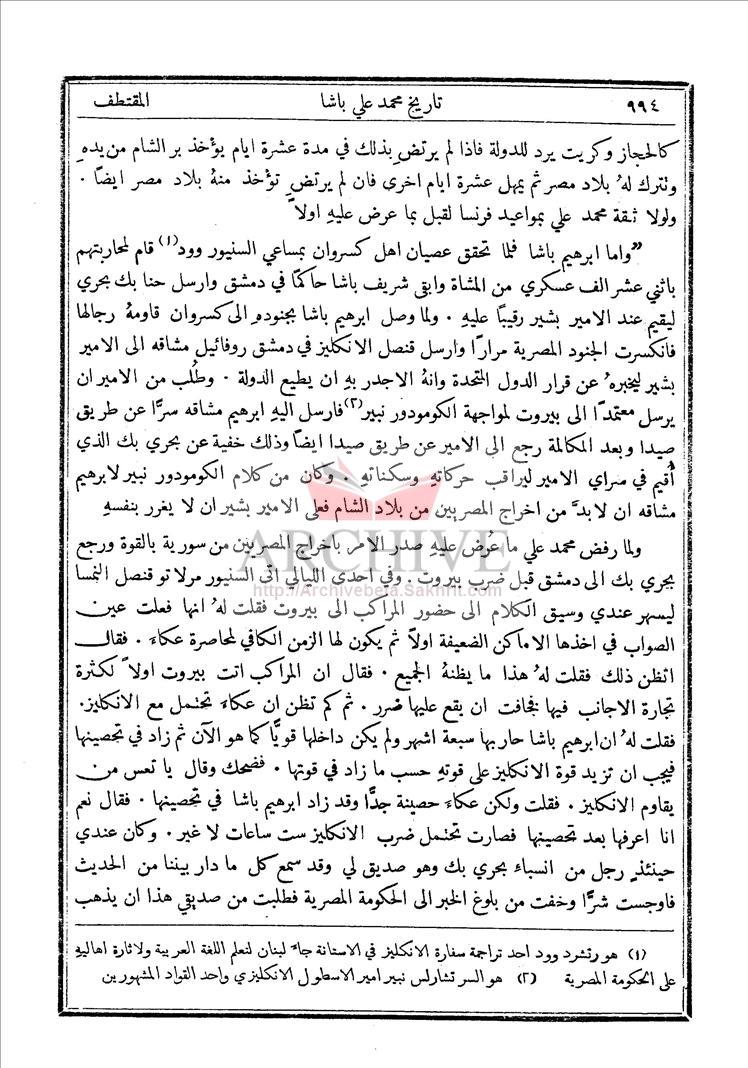 ٩٩٤ تاريخ محمد علي باشا المقتطف
كالحجاز وكريت يرد للدولة فاذا لم يرتضِ بذلك في مدة عشرة ايام يؤخذ بر الشام من يدهِ
وتترك لهُ بلاد مصر ثم يمهل عشرة ايام اخرى فان لم يرتضِ تؤخذ منهُ بلاد مصر ايضاً .
ولولا ثقة محمد علي بمواعيد فرنسا لقبل بما عرض عليهِ اولاً
”واما ابرهيم باشا فلما تحقق عصيان اهل كسروان بمساعي السنيور وود(١) قام لمحاربتهم
باثني عشر الف عسكري من المشاة وابقى شريف باشا حاكماً في دمشق وارسل حنا بك بحري
ليقيم عند الامير بشير رقيباً عليهِ . ولما وصل ابرهيم باشا بجنودهِ الى كسروان قاومهُ رجالها
فانكسرت الجنود المصرية مراراً وارسل قنصل الانكليز في دمشق روفائيل مشاقه الى الامير
بشير ليخبرهُ عن قرار الدول المتحدة وانهُ الاجدر بهِ ان يطيع الدولة . وطُلب من الامير ان
يرسل معتمداً الى بيروت لمواجهة الكومودور نبير(٢) فارسل اليهِ ابرهيم مشاقه سرًّا عن طريق
صيدا وبعد المكالمة رجع الى الامير عن طريق صيدا ايضاً وذلك خفية عن بحري بك الذي
أُقيم في سراي الامير ليراقب حركاتهِ وسكناتهِ . وكان من كلام الكومودور نبير لابرهيم
مشاقه ان لابدَّ من اخراج المصريين من بلاد الشام فعلى الامير بشير ان لا يغرر بنفسهِ
ولما رفض محمد علي ما عُرض عليهِ صدر الامر باخراج المصريين من سورية بالقوة ورجع
بحري بك الى دمشق قبل ضرب بيروت . وفي احدى الليالي اتى السنيور مرلاتو قنصل النمسا
ليسهر عندي وسيق الكلام الى حضور المراكب الى بيروت فقلت لهُ انها فعلت عين
الصواب في اخذها الاماكن الضعيفة اولاً ثم يكون لها الزمن الكافي لمحاصرة عكاء . فقال
اتظن ذلك فقلت لهُ هذا ما يظنهُ الجميع . فقال ان المراكب اتت بيروت اولاً لكثرة
تجارة الاجانب فيها فخافت ان يقع عليها ضرر . ثم كم تظن ان عكاء تحتمل مع الانكليز.
فقلت لهُ ان ابرهيم باشا حاربها سبعة اشهر ولم يكن داخلها قويًّا كما هو الآن ثم زاد في تحصينها
فيجب ان تزيد قوة الانكليز على قوتهِ حسب ما زاد في قوتها . فضحك وقال يا تعس من
يقاوم الانكليز . فقلت ولكن عكاء حصينة جدًّا وقد زاد ابرهيم باشا في تحصينها . فقال نعم
انا اعرفها بعد تحصينها فصارت تحتمل ضرب الانكليز ست ساعات لا غير . وكان عندي
حينئذٍ رجل من انسباء بحري بك وهو صديق لي وقد سمع كل ما دار بيننا من الحديث
فاوجست شرًّا وخفت من بلوغ الخبر الى الحكومة المصرية فطلبت من صديقي هذا ان يذهب
(١) هو رتشرد وود احد تراجمة سفارة الانكليز في الاستانة جاء لبنان لتعلم اللغة العربية ولاثارة اهاليهِ
على الحكومة المصرية (٢) هو السر تشارلس نبير امير الاسطول الانكليزي واحد القواد المشهورين
ARCHIVE
http://Archivebeta.Sakhrit.com